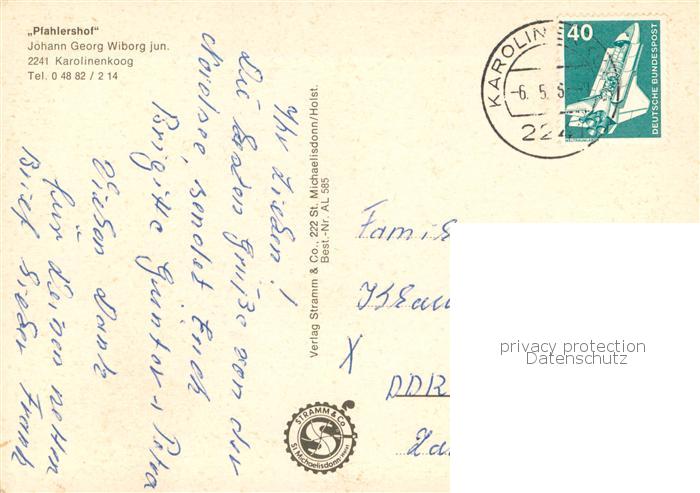 „Pfahlershof“
Johann Georg Wiborg jun.
2241 Karolinenkoog
Tel. 0 48 82 / 2 14
Ihr Lieben!
Die besten Grüße von der
Nordsee, sendet Euch
Brigitte Günter + Petra
Vielen Dank
für Deinen netten
Brief lieber Frank
Verlag Stramm & Co., 222 St. Michaelisdonn/Holst.
Best.-Nr. AL 585
STRAMM & Co
St. Michaelisdonn
KAROLIN
-6. 5.
224
40
DEUTSCHE BUNDESPOST
WELTRAUMLABOR
Fami
Klau
X
DDR
privacy protection
Datenschutz